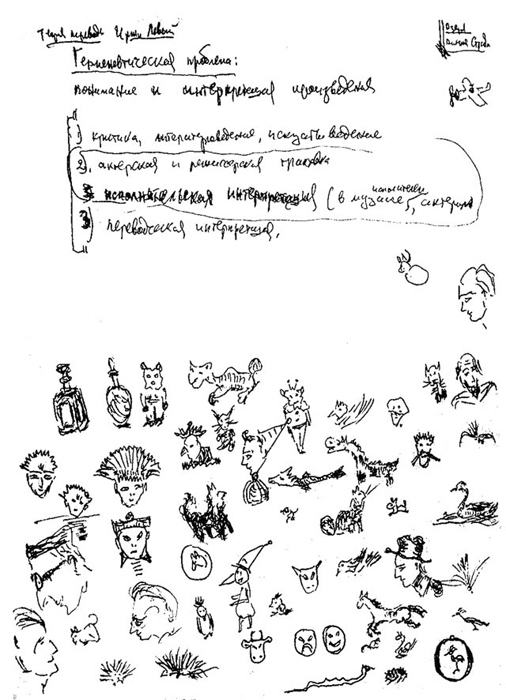 Теория перевода Иржи Левый
Герменевтическая проблема:
понимание и интерпретация произведения
1) критика, литературоведение, искусствоведение
2) актёрская и режиссёрская трактовка
исполнительская интерпретация (в музыке, актеры
3) переводческая интерпретация.